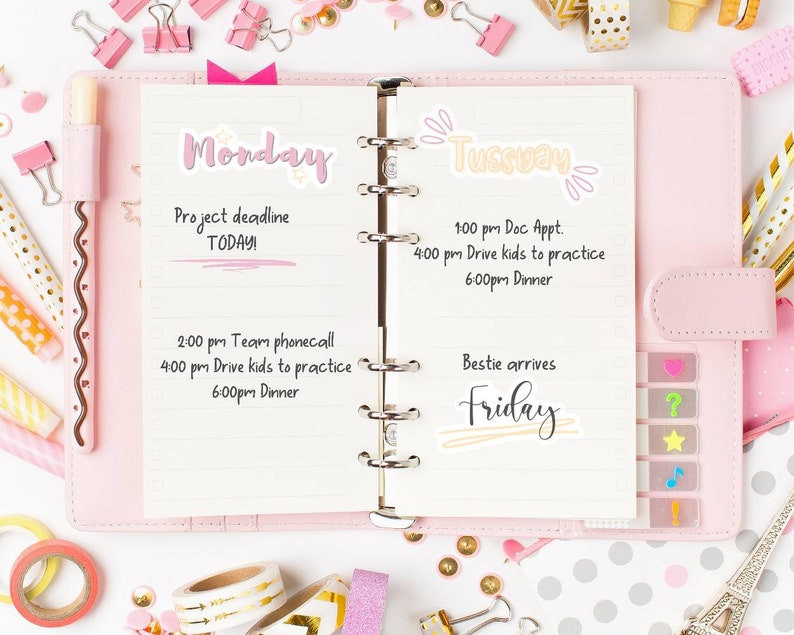 Monday
Project deadline
TODAY!
2:00 pm Team phonecall
4:00 pm Drive kids to practice
6:00pm Dinner
Tuesday
1:00 pm Doc Appt.
4:00 pm Drive kids to practice
6:00pm Dinner
Bestie arrives
Friday
BISCUITS